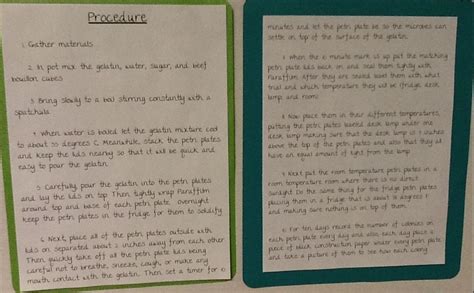 Procedure
1. Gather materials
2. In pot mix the gelatin, water, sugar, and beef
bouillon cubes
3. Bring slowly to a boil stirring constantly with a
spatchula
4. When water is boiled let the gelatin mixture cool
to about 55 degrees C. Meanwhile, stack the petri plates
and keep the lids nearby so that it will be quick and
easy to pour the gelatin.
5. Carefully, pour the gelatin into the petri plates
and lay the lids on top. Then tightly wrap Paraffin
around top and base of each petri plate. overnight
keep the petri plates in the fridge for them to solidify
6. Next, place all of the petri plates outside with
lids on separated about 2 inches away from each other
Then quickly take off all the petri plate lids being
careful not to breathe, sneeze, cough, or make any
mouth contact with the gelatin. Then, set a timer for 10
minutes and let the petri plate be so the microbes can
settle on top of the surface of the gelatin.
7. When the 10 minute mark is up put the matching
petri plate lids back on and seal them tightly with
Paraffin. After they are sealed label them with what
trial and which temperature they will be: fridge, desk
lamp, and room)
8. Now place them in their different temperatures,
putting the petri plates labeled desk lamp under one
desk lamp making sure that the desk lamp is 5 inches
above the top of the petri plates and also that they all
have an equal amount of light from the lamp
9. Next put the room temperature petri plates in a
room temperature room where there is no direct
sunlight. Do the same thing for the fridge petri plates
placing them in a fridge that is about 12 degrees C
and making sure nothing is on top of them.
10. For ten days record the number of colonies on
each petri plate every day and also each day place a
piece of black construction paper under every petri plate
and take a picture of them to see how each colony